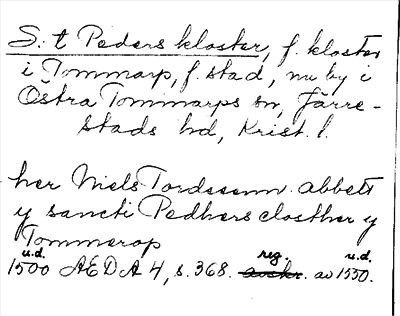 S:t Peders kloster, f. kloster
i Tommarp, f. stad, nu by i
Östra Tommarps sn, Järre-
stads hd, Krist. l.
her Niels Tordssenn abbett
y sancti Pedhers closther y
Tommerop
u.d. reg. u.d.
1500 AEDA 4, s. 368. avskr. av 1550.